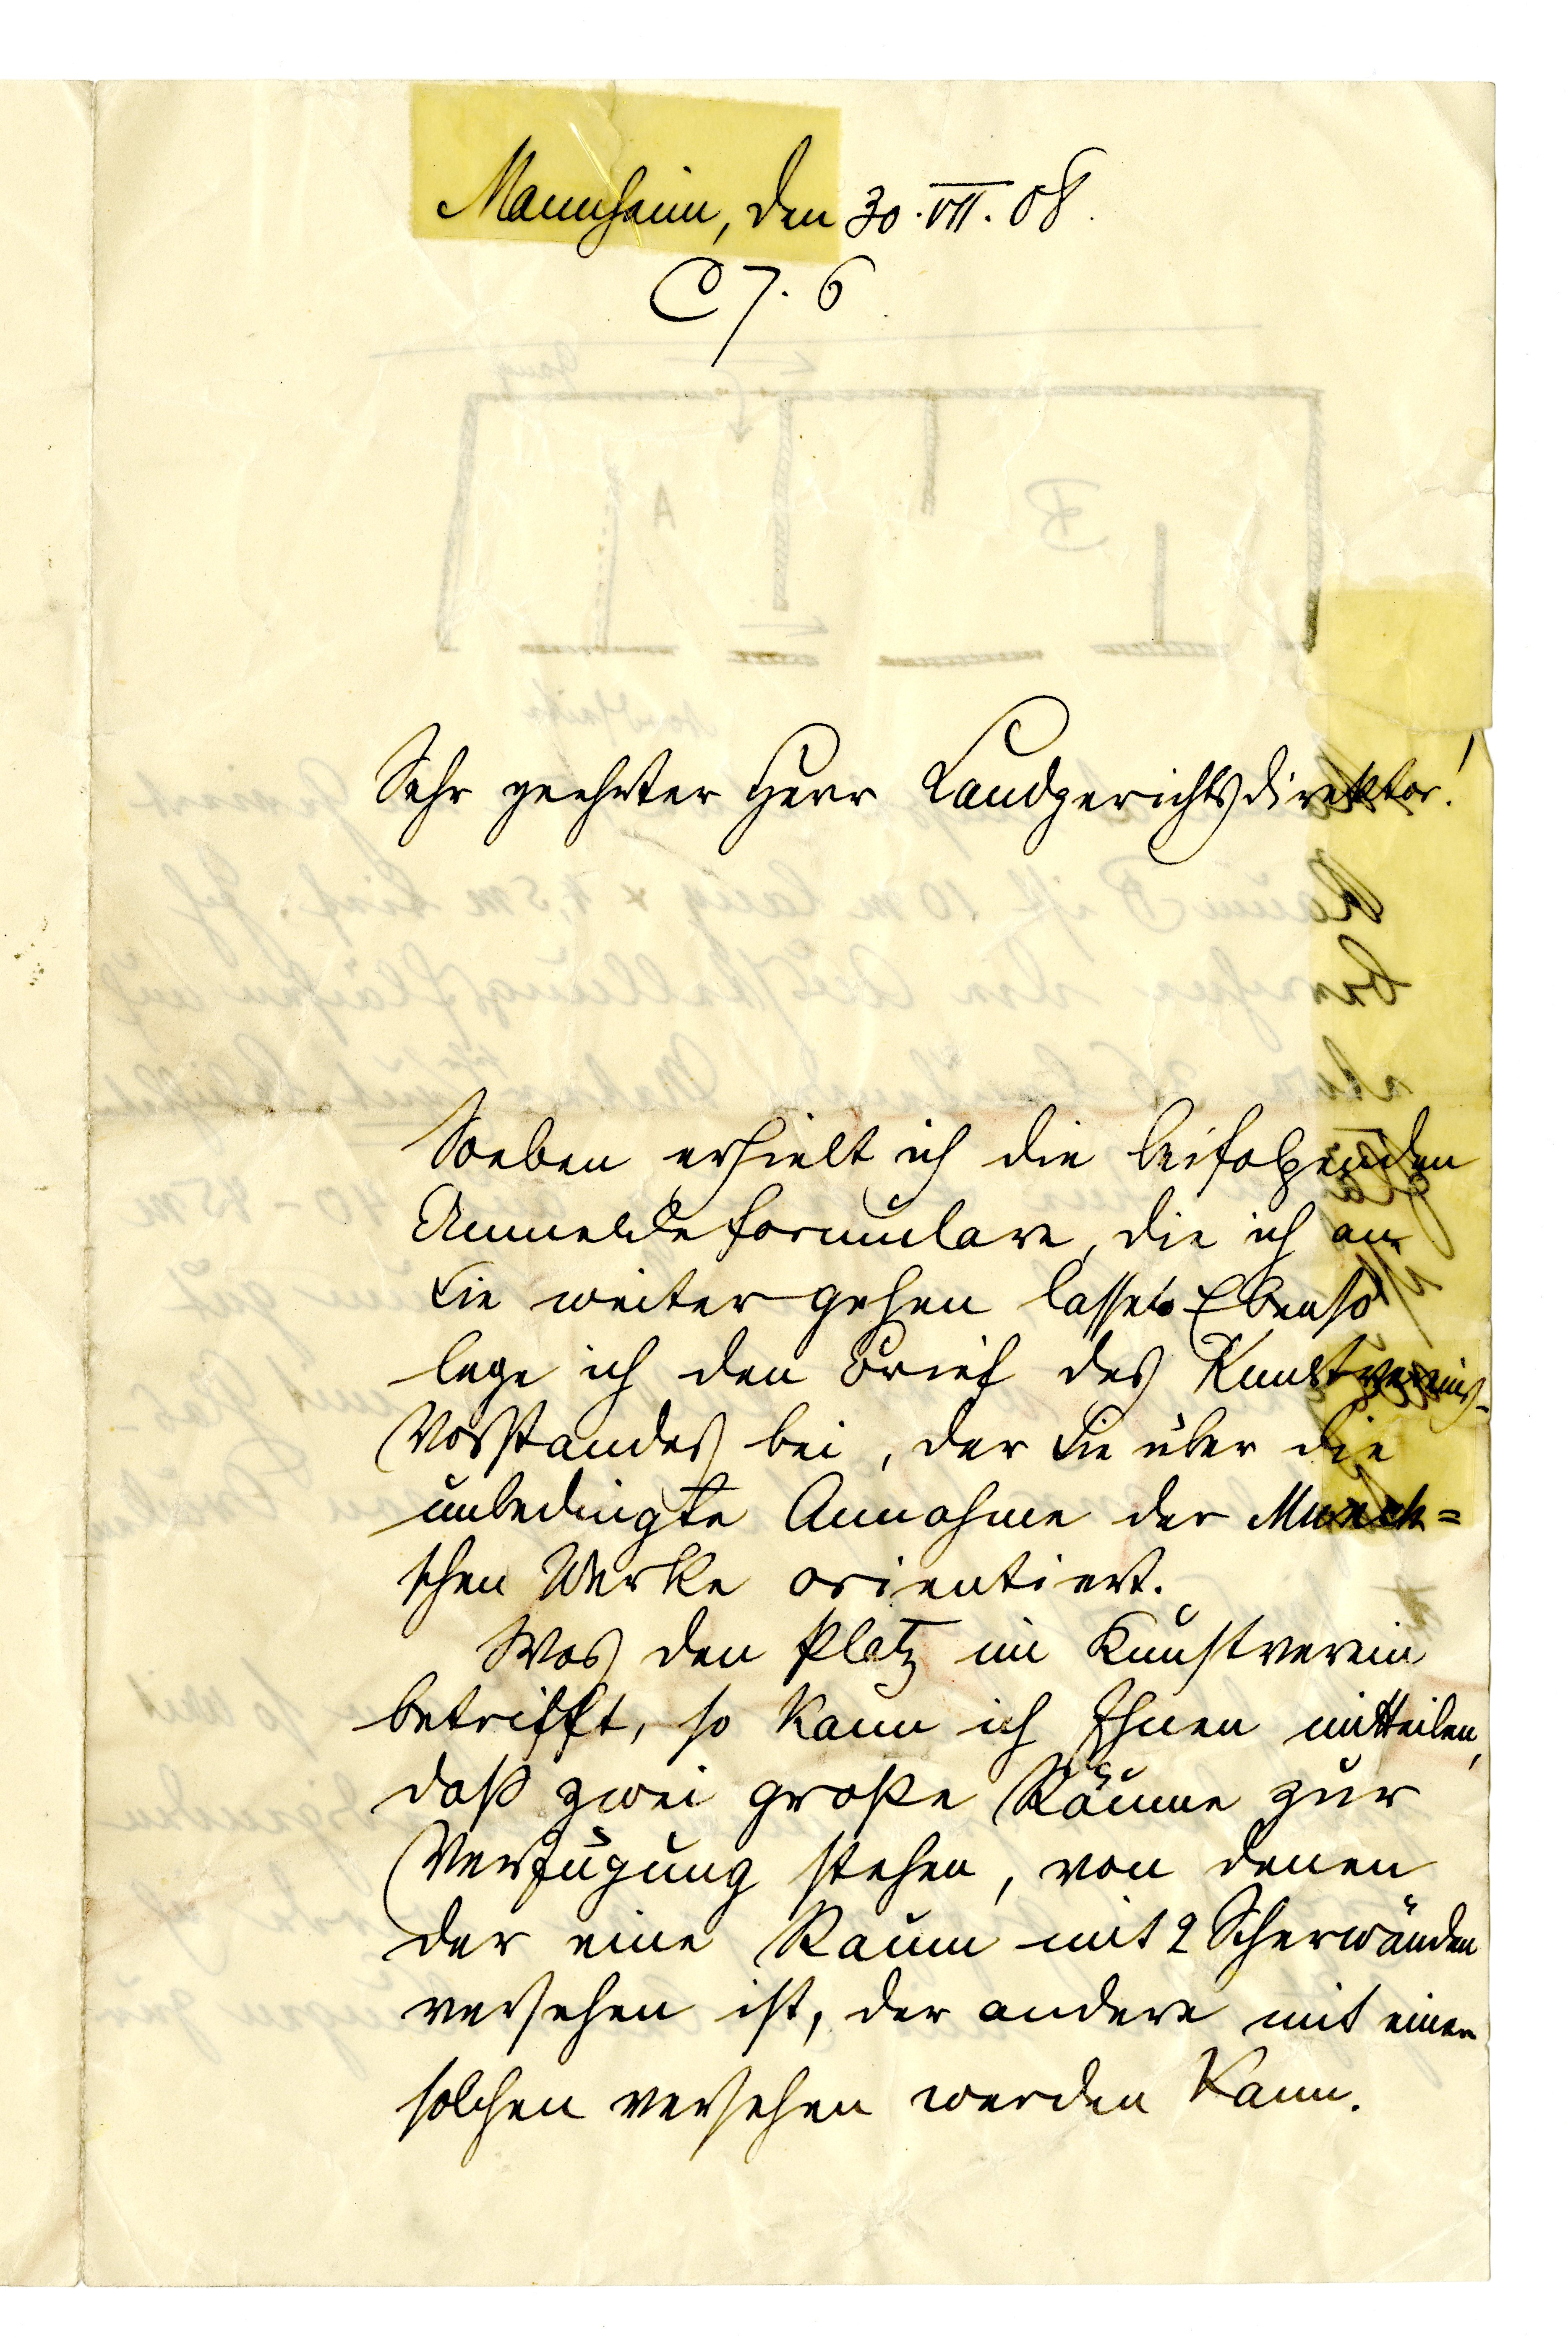 Mannheim, den 30.VII.08.
C 7. 6
Sehr geehrter Herr Landgerichtsdirektor!
Soeben erhielt ich die beifolgenden
Anmeldeformulare, die ich an
Sie weiter gehen lasse. Ebenso
lege ich den Brief des Kunstvereins-
Vorstandes bei, der Sie über die
unbedingte Annahme der Munch=
schen Werke orientiert.
Was den Platz im Kunstverein
betrifft, so kann ich Ihnen mitteilen,
daß zwei große Räume zur
Verfügung stehen, von denen
der eine Raum mit 2 Scherwänden
versehen ist, der andere mit einer
solchen versehen werden kann.